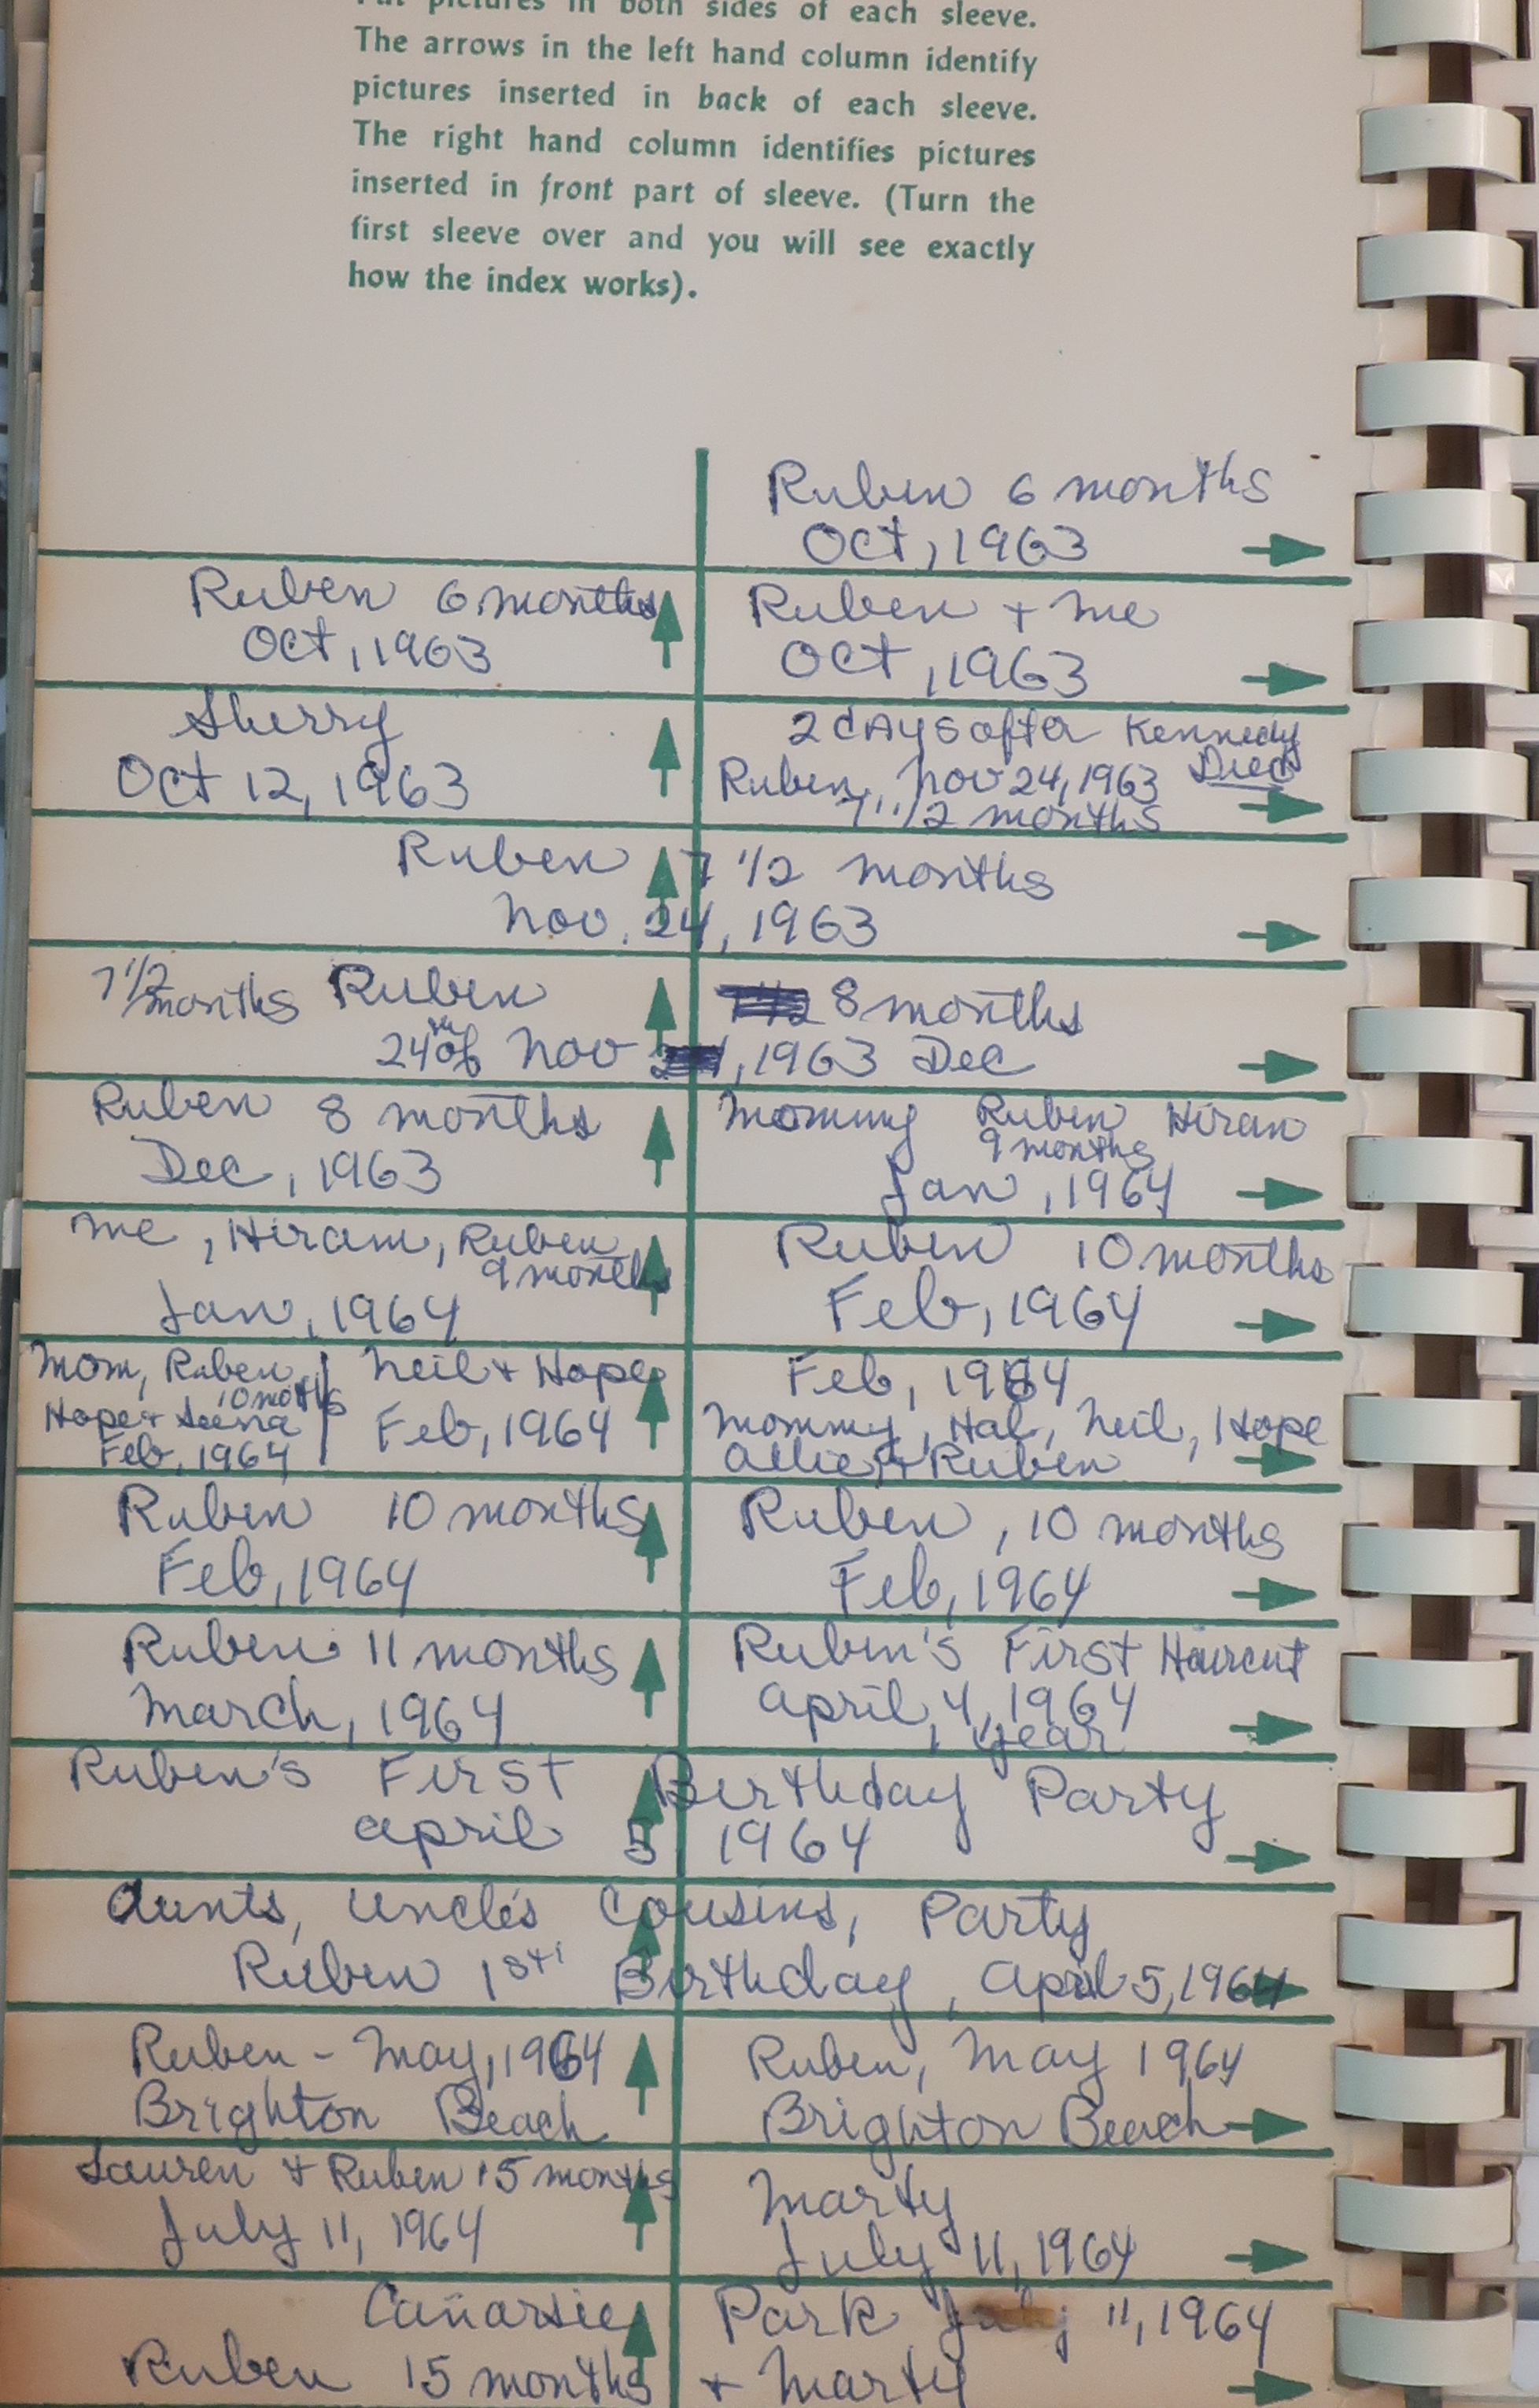 Put pictures in both sides of each sleeve.
The arrows in the left hand column identify
pictures inserted in back of each sleeve.
The right hand column identifies pictures
inserted in front part of sleeve. (Turn the
first sleeve over and you will see exactly
how the index works).
Ruben 6 months
Oct, 1963
Ruben 6 months
Oct, 1963
Ruben + me
Oct, 1963
Sherry
Oct 12, 1963
2 days after Kennedy
Died
Ruben, Nov 24, 1963
7 1/2 months
Ruben 7 1/2 months
Nov. 24, 1963
7 1/2 months Ruben
24th of Nov
8 months
, 1963 Dec
Ruben 8 months
Dec, 1963
Mommy Ruben Hiram
9 months
Jan, 1964
me, Hiram, Ruben
9 months
Jan, 1964
Ruben 10 months
Feb, 1964
Mom, Ruben
10 months
Hope +
Feb, 1964
Neil + Hope
Feb, 1964
Feb, 1964
Mommy, Hal, Neil, Hope
Allie + Ruben
Ruben 10 months
Feb, 1964
Ruben, 10 months
Feb, 1964
Ruben 11 months
March, 1964
Ruben's First Haircut
April, 4, 1964
1 year
Ruben's First Birthday Party
April 5 1964
Aunts, Uncle's Cousins, Party
Ruben 1st Birthday, April 5, 1964
Ruben - May, 1964
Brighton Beach
Ruben, May 1964
Brighton Beach
Lauren + Ruben 15 months
July 11, 1964
Marty
July 11, 1964
Canarsie Park July 11, 1964
Ruben 15 months + Marty